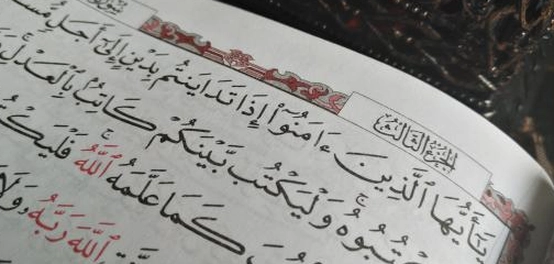 الجزء الثالث
يَٰٓأَيُّهَا ٱلَّذِينَ ءَامَنُوٓاْ إِذَا تَدَايَنتُم بِدَيْنٍ إِلَىٰٓ أَجَلٍ
وَلْيَكْتُب بَّيْنَكُمْ كَاتِبٌۢ بِٱلْعَدْلِ
كَمَا عَلَّمَهُ ٱللَّهُ ۚ
ٱللَّهَ رَبَّهُۥ وَلَا